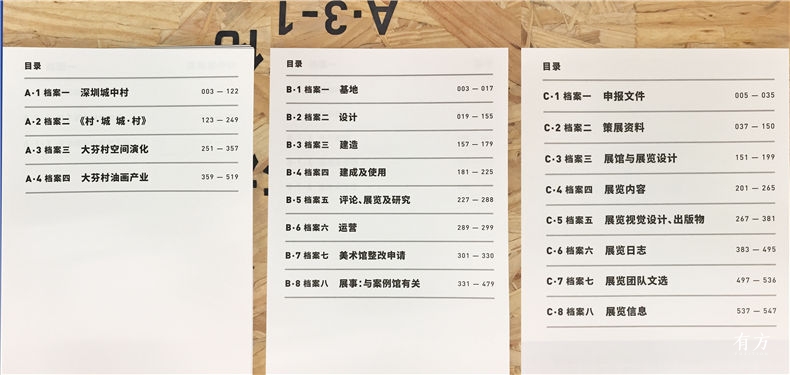 A·3-1
10
目录
A·1 档案一 深圳城中村 003 — 122
A·2 档案二 《村·城 城·村》 123 — 249
A·3 档案三 大芬村空间演化 251 — 357
A·4 档案四 大芬村油画产业 359 — 519
目录
B·1 档案一 基地 003 — 017
B·2 档案二 设计 019 — 155
B·3 档案三 建造 157 — 179
B·4 档案四 建成及使用 181 — 225
B·5 档案五 评论、展览及研究 227 — 288
B·6 档案六 运营 289 — 299
B·7 档案七 美术馆整改申请 301 — 330
B·8 档案八 展事：与案例馆有关 331 — 479
目录
C·1 档案一 申报文件 005 — 035
C·2 档案二 策展资料 037 — 150
C·3 档案三 展馆与展览设计 151 — 199
C·4 档案四 展览内容 201 — 265
C·5 档案五 展览视觉设计、出版物 267 — 381
C·6 档案六 展览日志 383 — 495
C·7 档案七 展览团队文选 497 — 536
C·8 档案八 展览信息 537 — 547
有方